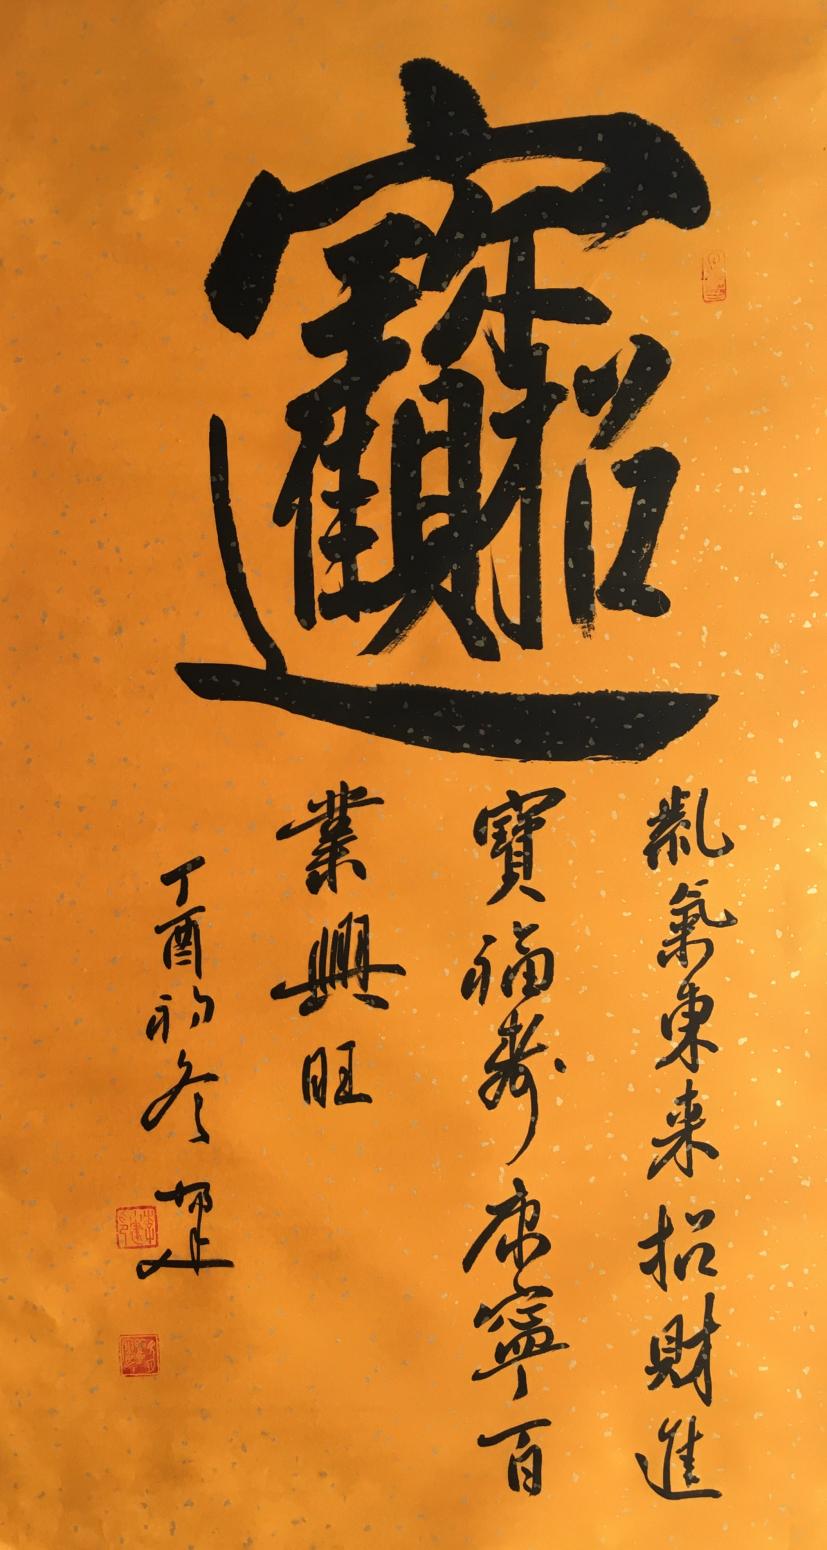 招財進寶
紫氣東来招財進
寶福壽康寧百
業興旺
丁酉初冬